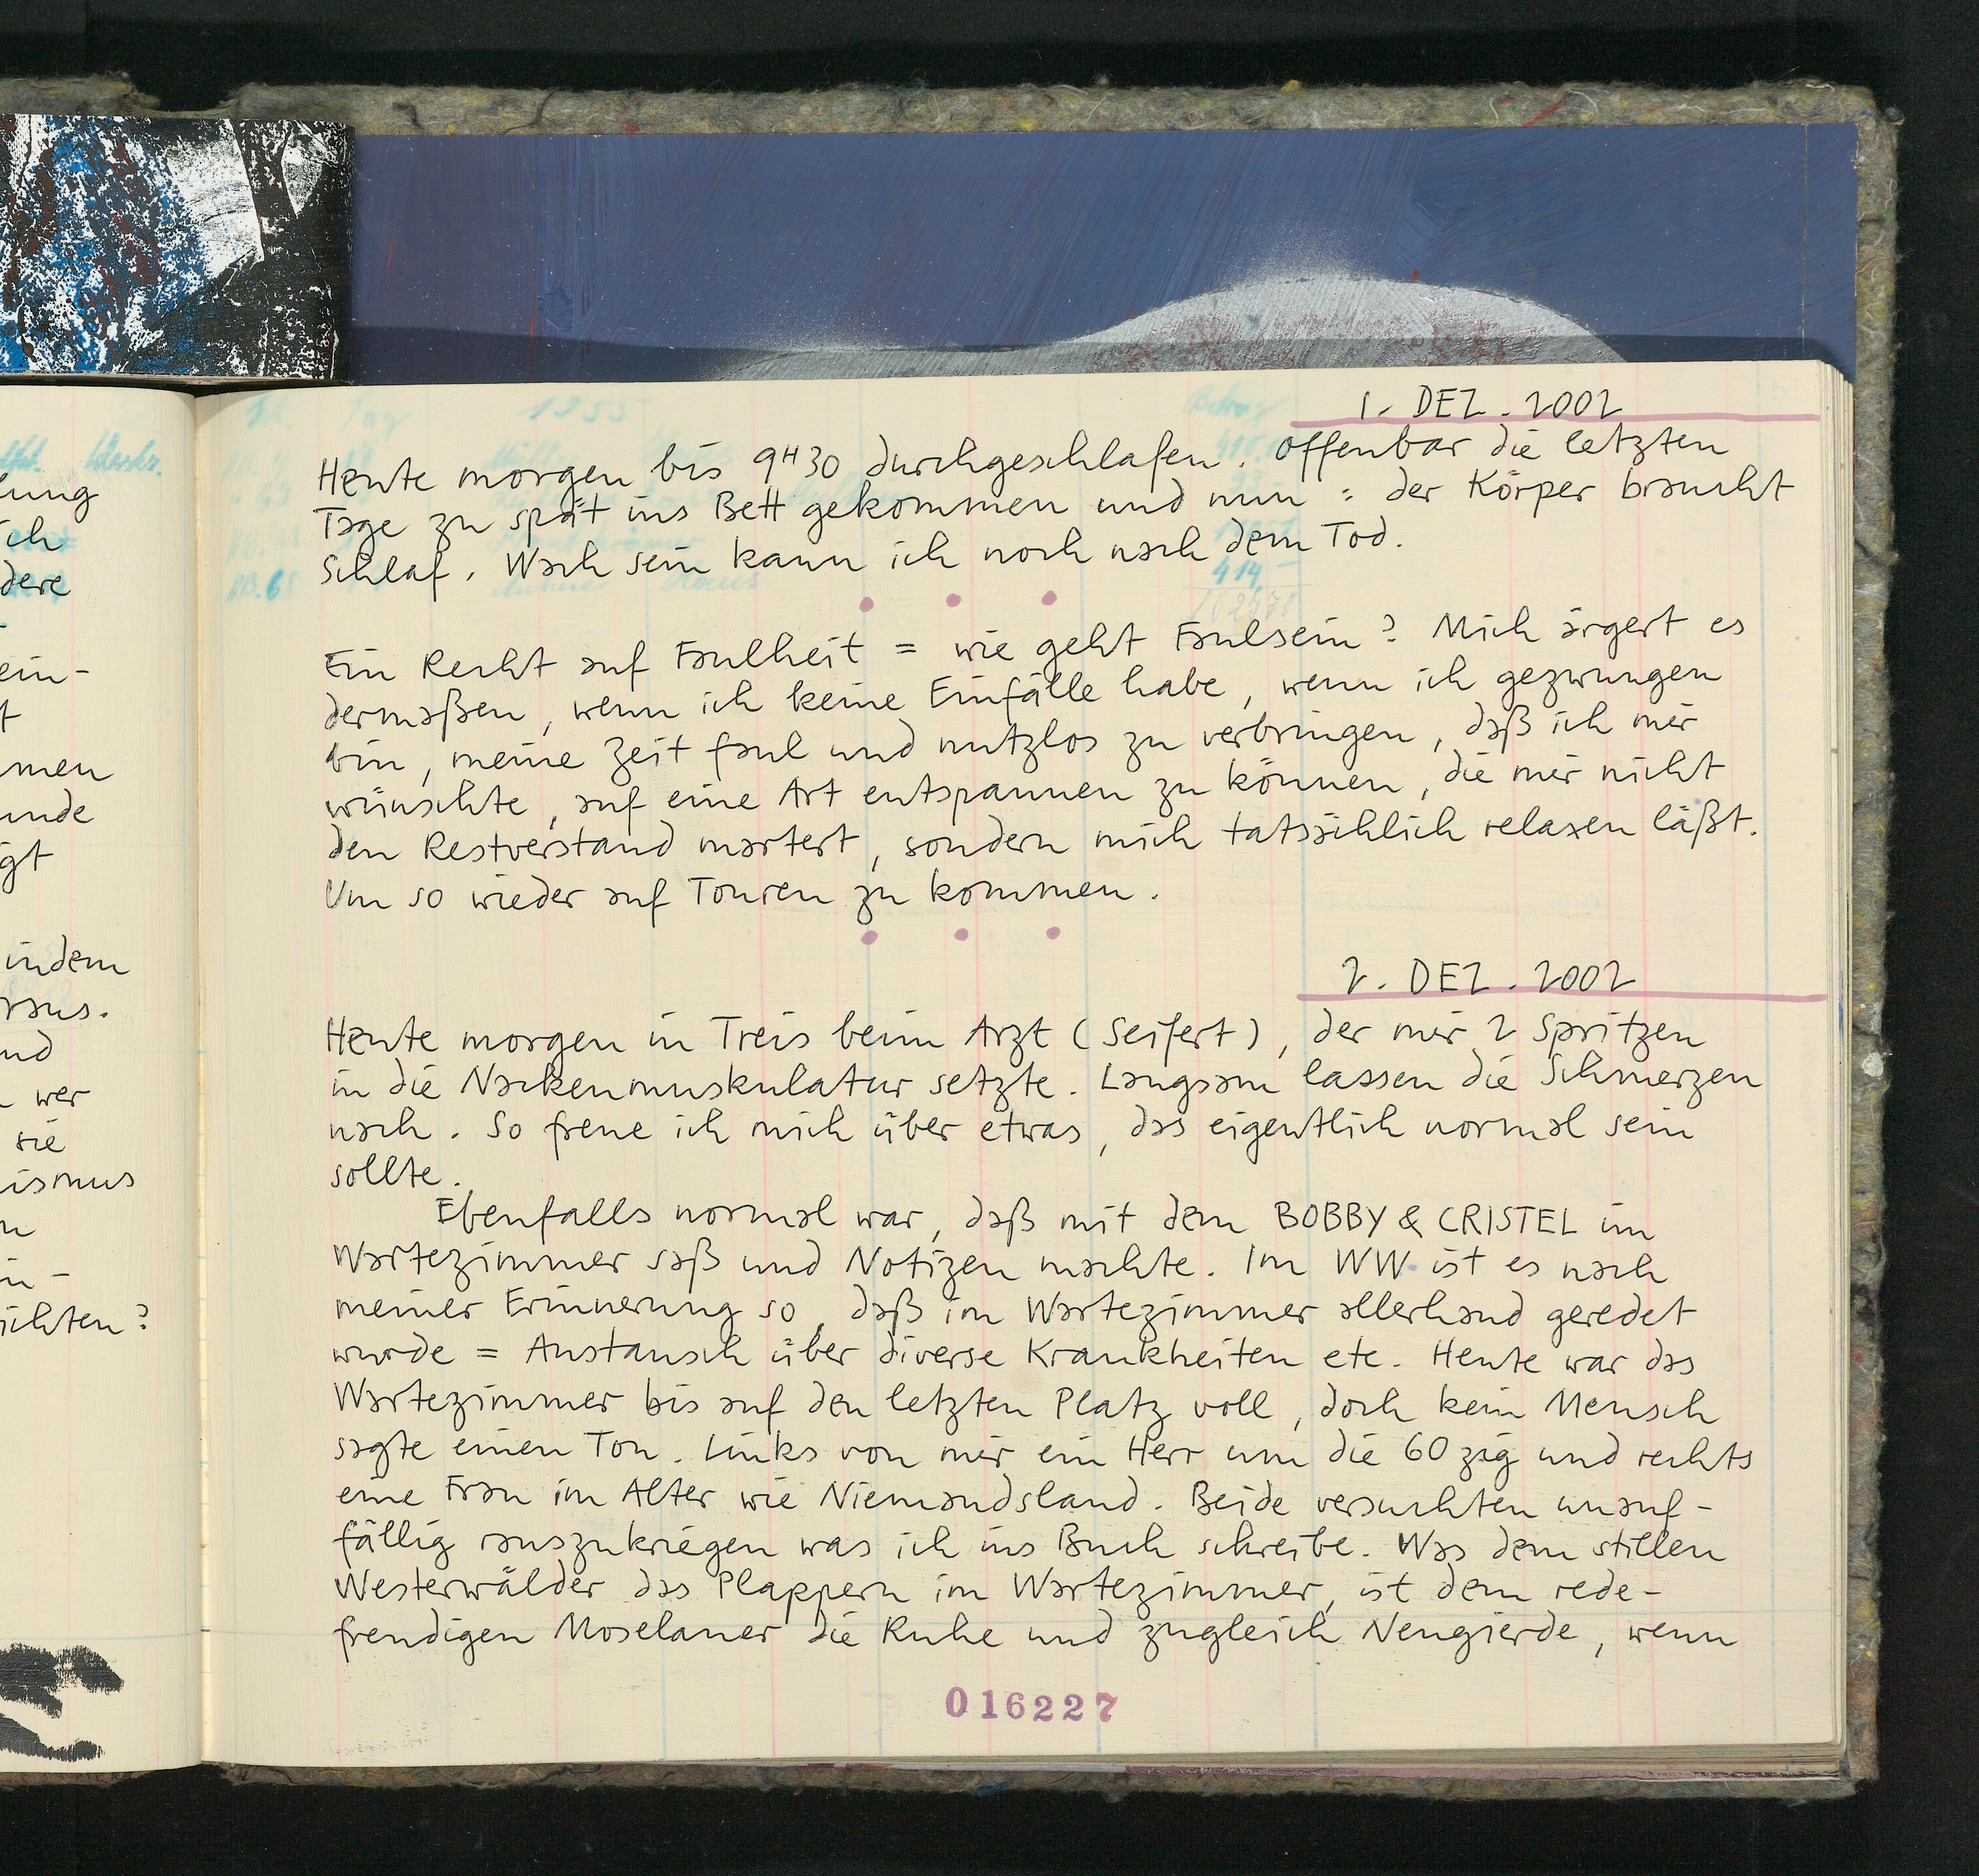 lung
ich
dere
ein-
t
men
unde
gt
indem
raus.
nd
wer
sie
ismus
n
in-
ichten?
1. DEZ. 2002
Heute morgen bis 9H30 durchgeschlafen. Offenbar die letzten
Tage zu spät ins Bett gekommen und nun = der Körper braucht
Schlaf. Wach sein kann ich noch nach dem Tod.
• • •
Ein Recht auf Faulheit = wie geht Faulsein? Mich ärgert es
dermaßen, wenn ich keine Einfälle habe, wenn ich gezwungen
bin, meine Zeit faul und nutzlos zu verbringen, daß ich mir
wünschte, auf eine Art entspannen zu können, die mir nicht
den Restverstand martert, sondern mich tatsächlich relaxen läßt.
Um so wieder auf Touren zu kommen.
• • •
2. DEZ. 2002
Heute morgen in Treis beim Arzt (Seifert), der mir 2 Spritzen
in die Nackenmuskulatur setzte. Langsam lassen die Schmerzen
nach. So freue ich mich über etwas, das eigentlich normal sein
sollte.
Ebenfalls normal war, daß mit dem BOBBY & CRISTEL im
Wartezimmer saß und Notizen machte. Im WW ist es nach
meiner Erinnerung so, daß im Wartezimmer allerhand geredet
wurde = Austausch über diverse Krankheiten etc. Heute war das
Wartezimmer bis auf den letzten Platz voll, doch kein Mensch
sagte einen Ton. Links von mir ein Herr um die 60zig und rechts
eine Frau im Alter wie Niemandsland. Beide versuchten unauf-
fällig rauszukriegen was ich ins Buch schreibe. Was dem stillen
Westerwälder das Plappern im Wartezimmer, ist dem rede-
freudigen Moselaner die Ruhe und zugleich Neugierde, wenn
016227